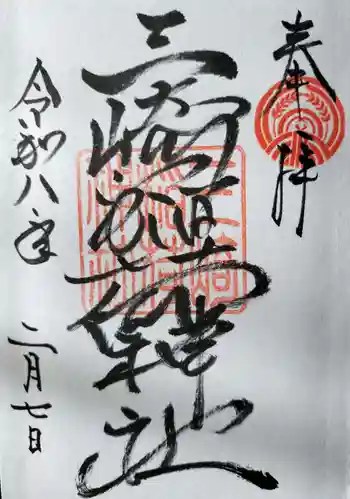 奉拝
三崎稲荷神社
令和八年
二月七日